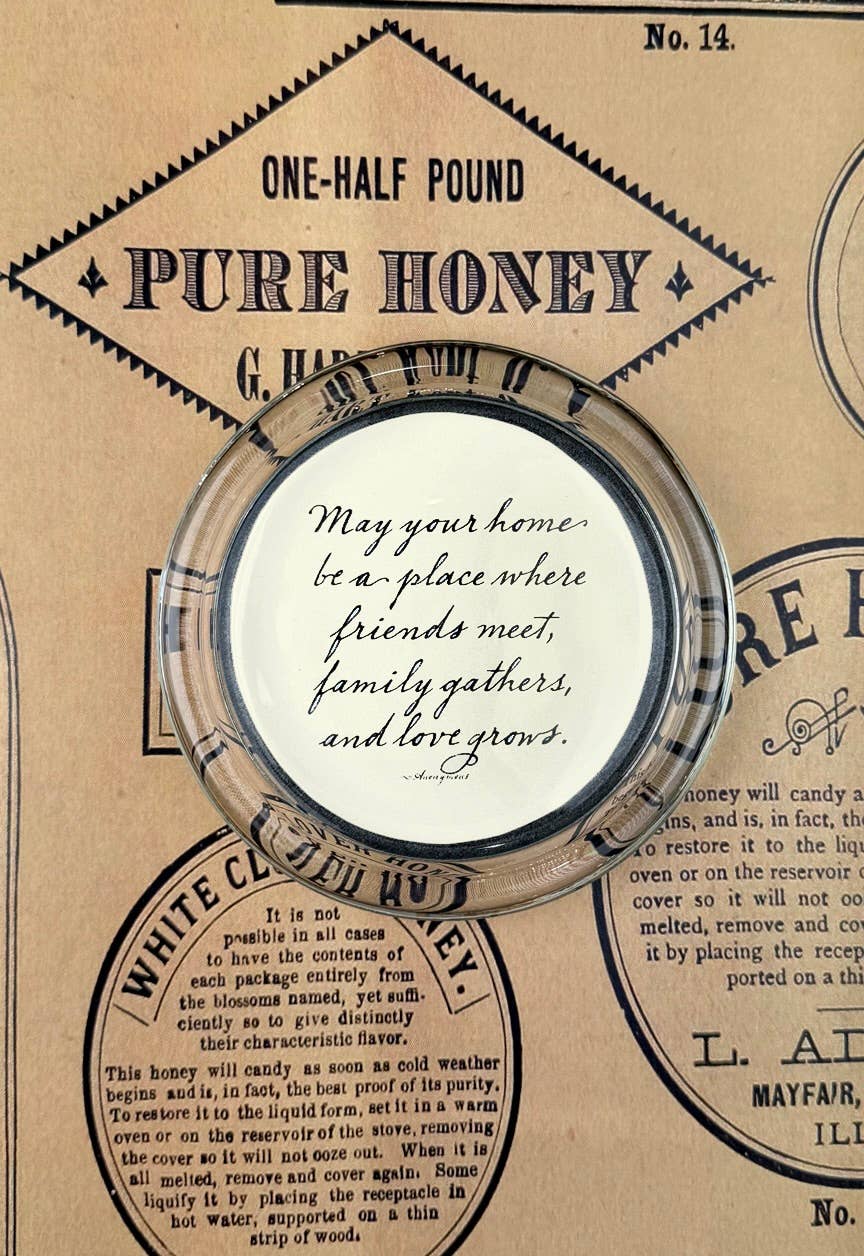 No. 14.
ONE-HALF POUND
PURE HONEY
G.
May your home
be a place where
friends meet,
family gathers,
and love grows.
~Anonymous
WHITE
It is not
possible in all cases
to have the contents of
each package entirely from
the blossoms named, yet suffi-
ciently so to give distinctly
their characteristic flavor.
This honey will candy as soon as cold weather
begins and is, in fact, the best proof of its purity.
To restore it to the liquid form, set it in a warm
oven or on the reservoir of the stove, removing
the cover so it will not ooze out. When it is
all melted, remove and cover again. Some
liquify it by placing the receptacle in
hot water, supported on a thin
strip of wood.
honey will candy
and is, in fact,
To restore it to the
oven or on the reservoir
cover so it will not
melted, remove and
it by placing the
ported on a
L.
MAYFAIR,
No.